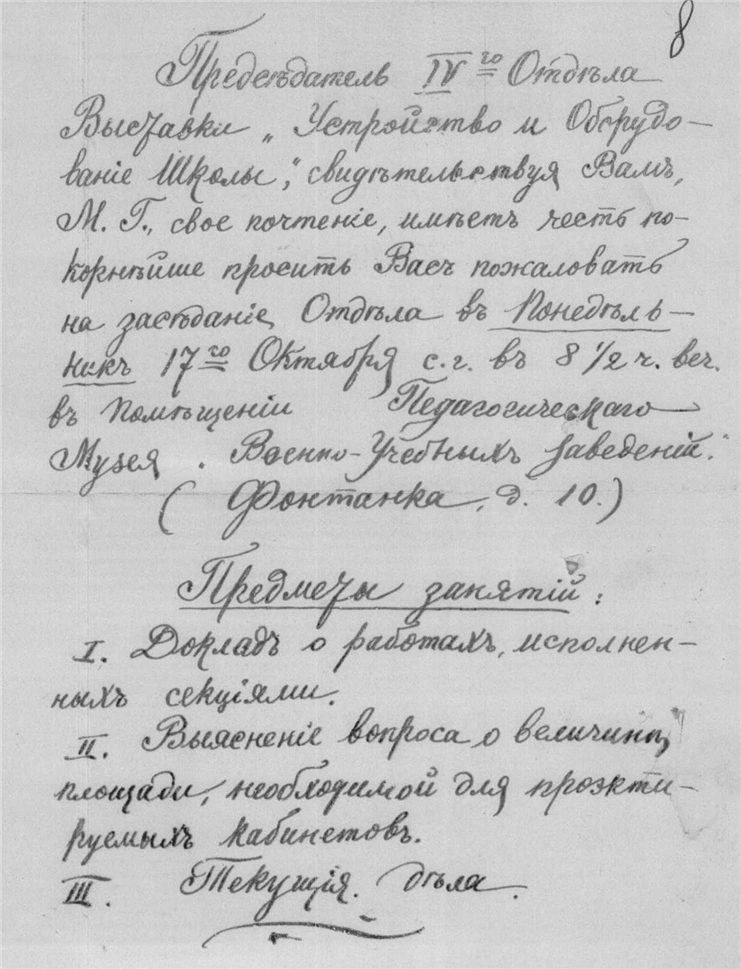 8
Предсѣдатель IVго Отдѣла
Выставки „Устройство и Оборудо-
ваніе Школы“, свидѣтельствуя Вамъ,
М. Г., свое почтеніе, имѣетъ честь по-
корнѣйше просить Васъ пожаловать
на засѣданіе Отдѣла въ Понедѣль-
никъ 17го Октября с.г. въ 8 1/2 ч. веч.
въ помѣщеніи Педагогическаго
Музея Военно-Учебныхъ Заведеній.
(Фонтанка, д. 10.)
Предметы занятій:
I. Докладъ о работахъ, исполнен-
ныхъ секціями.
II. Выясненіе вопроса о величинѣ
площади, необходимой для проэкти-
руемыхъ кабинетовъ.
III. Текущія дѣла.